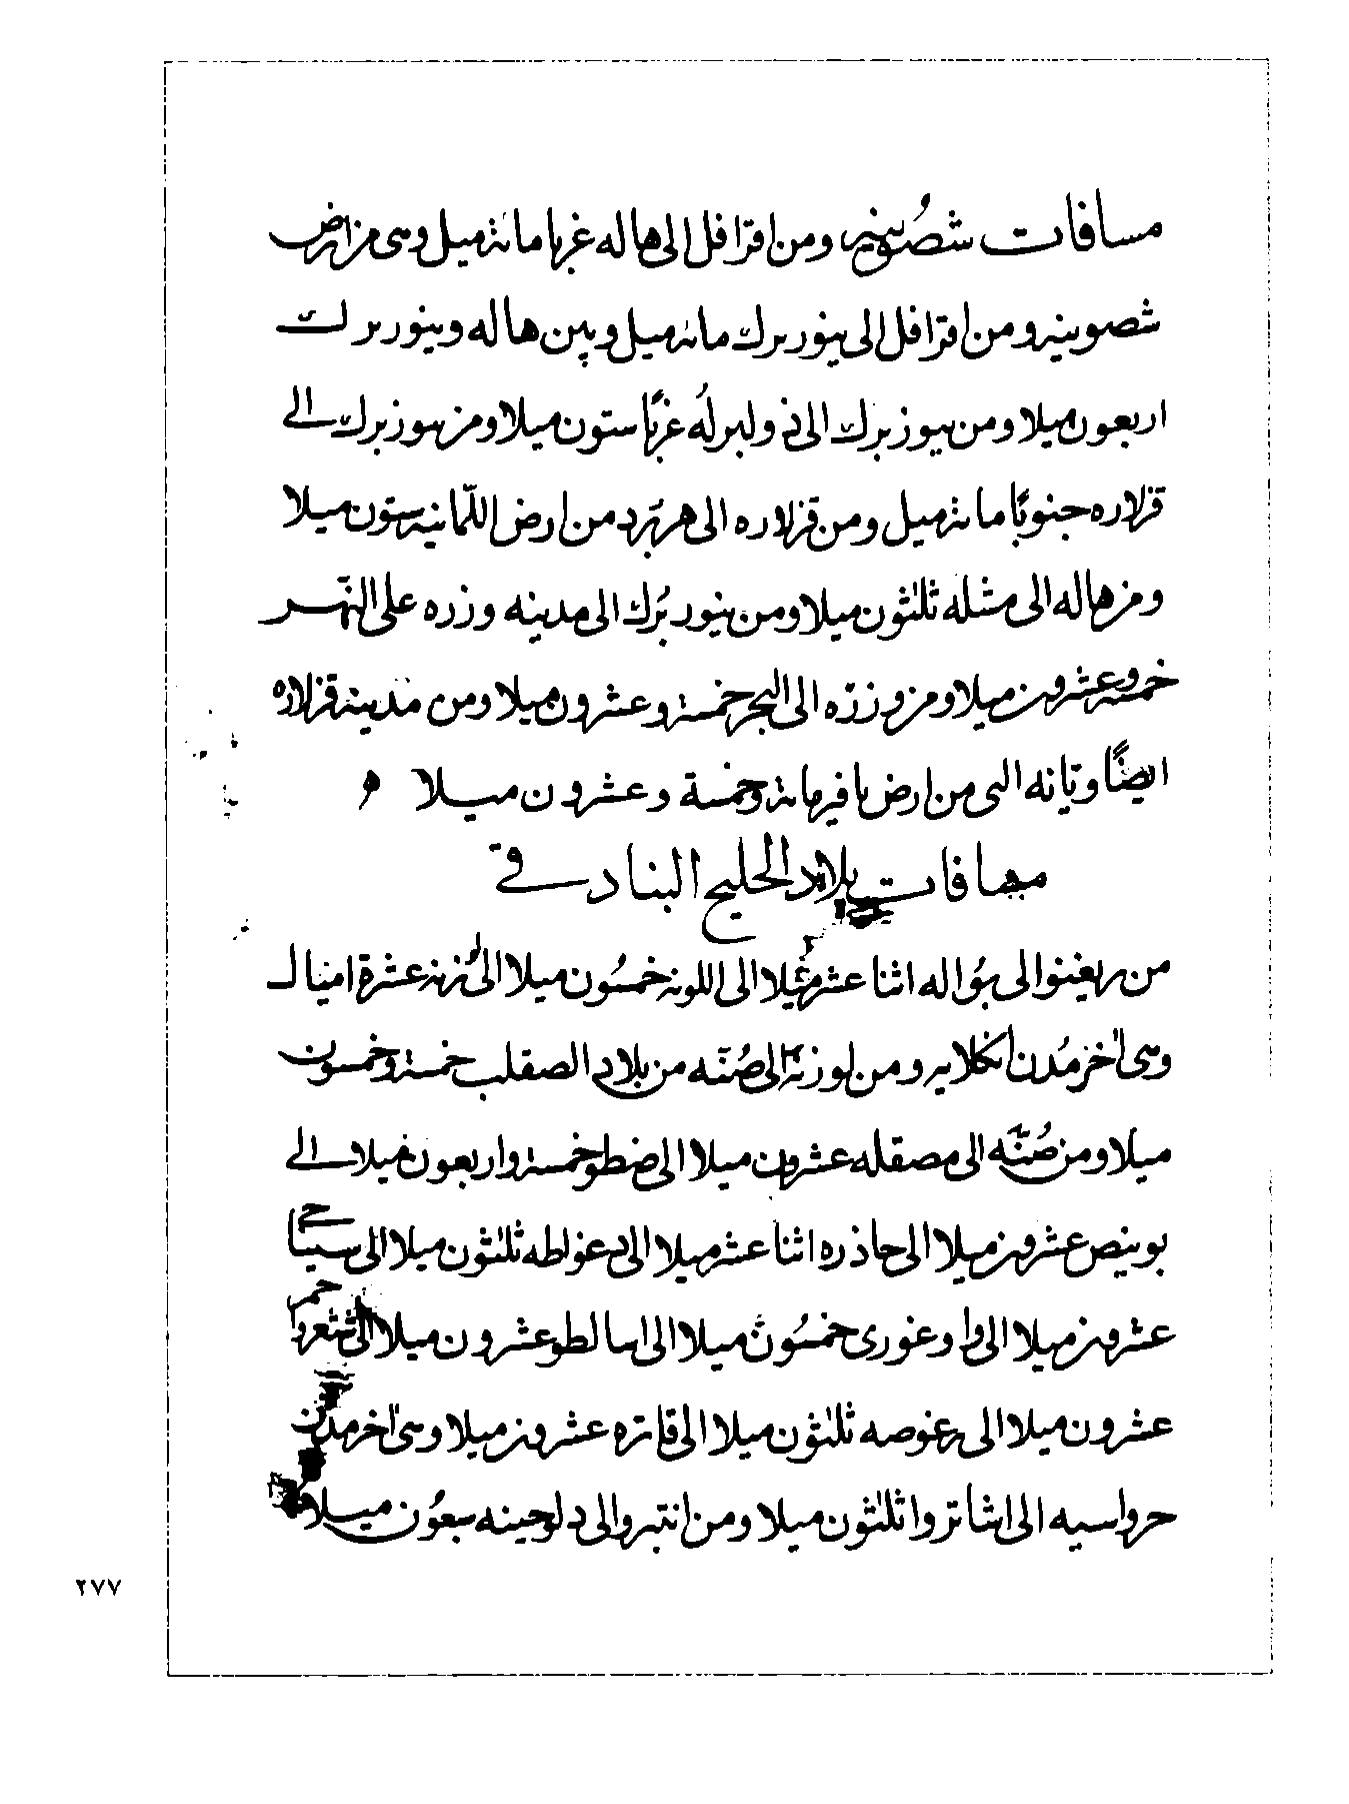 مسافات شصونيه ومن اقرافل الى هاله غربا مائة ميل وهى من ارض
شصونيه ومن اقرافل الى نيوربرك مائة ميل وبين هاله ونيوربرك
اربعون ميلا ومن نيوزبرك الى ولبرله غربًا ستون ميلا ومن نيوزبرك الى
قزلاره جنوبًا مائة ميل ومن قزلاره الى هربرد من ارض اللمانيه ستون ميلا
ومن هاله الى مشله ثلثون ميلا ومن نيوربرك الى مدينه وزره على النهر
خمسه وعشرون ميلا ومن وزره الى البحر خمسة وعشرون ميلا ومن مدينة قزلاره
ايضًا وتانه التى من ارض بافير مائة وخمسة وعشرون ميلا ه
مسافات بلاد الخليج البنادقى
من ريغنو الى بواله اثنا عشر ميلا الى اللونه خمسون ميلا الى لوزنه عشرة اميال
وهى اخر مدن انكلايه ومن لوزنه الى صنّه من بلاد الصقلب خمسة وخمسون
ميلا ومن صنّه الى مصقله عشرون ميلا الى ضطو خمسة واربعون ميلا الى
بوينص عشرون ميلا الى جاذره اثنا عشر ميلا الى دغواطه ثلثون ميلا الى سيناجى
عشرون ميلا الى وغورى خمسون ميلا الى اسالطو عشرون ميلا الى
عشرون ميلا الى رغوصه ثلثون ميلا الى قاتره عشرون ميلا وهى اخر مدن
جرواسيه الى انثاترو ثلثون ميلا ومن انتبرو الى دلوجينه سبعون ميلا
٢٧٧